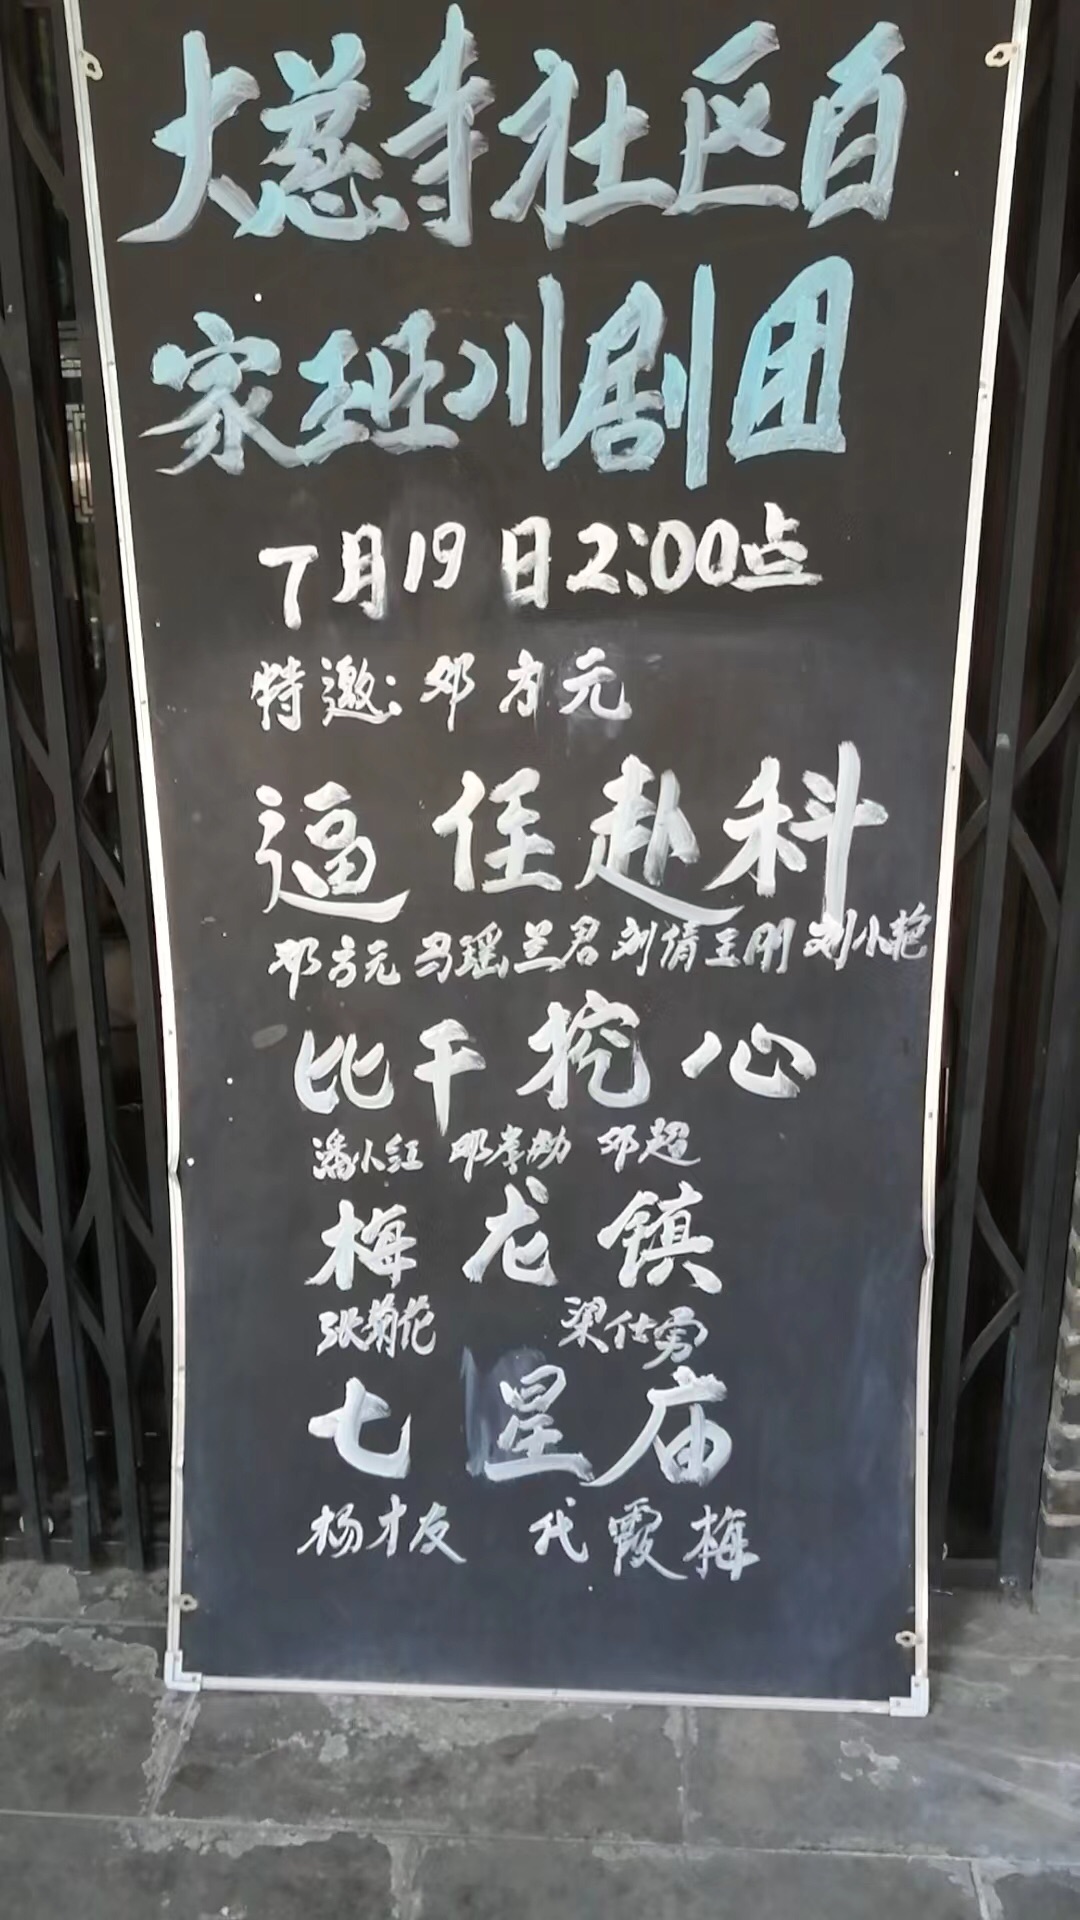 大慈寺社区百
家班川剧团
7月19日2:00点
特邀:邓方元
逼侄赴科
邓方元 马瑶 兰君 刘倩 王刚 刘小艳
比干挖心
潘小红 邓孝勋 邓超
梅龙镇
张菊花 梁仕勇
七星庙
杨才友 代霞梅